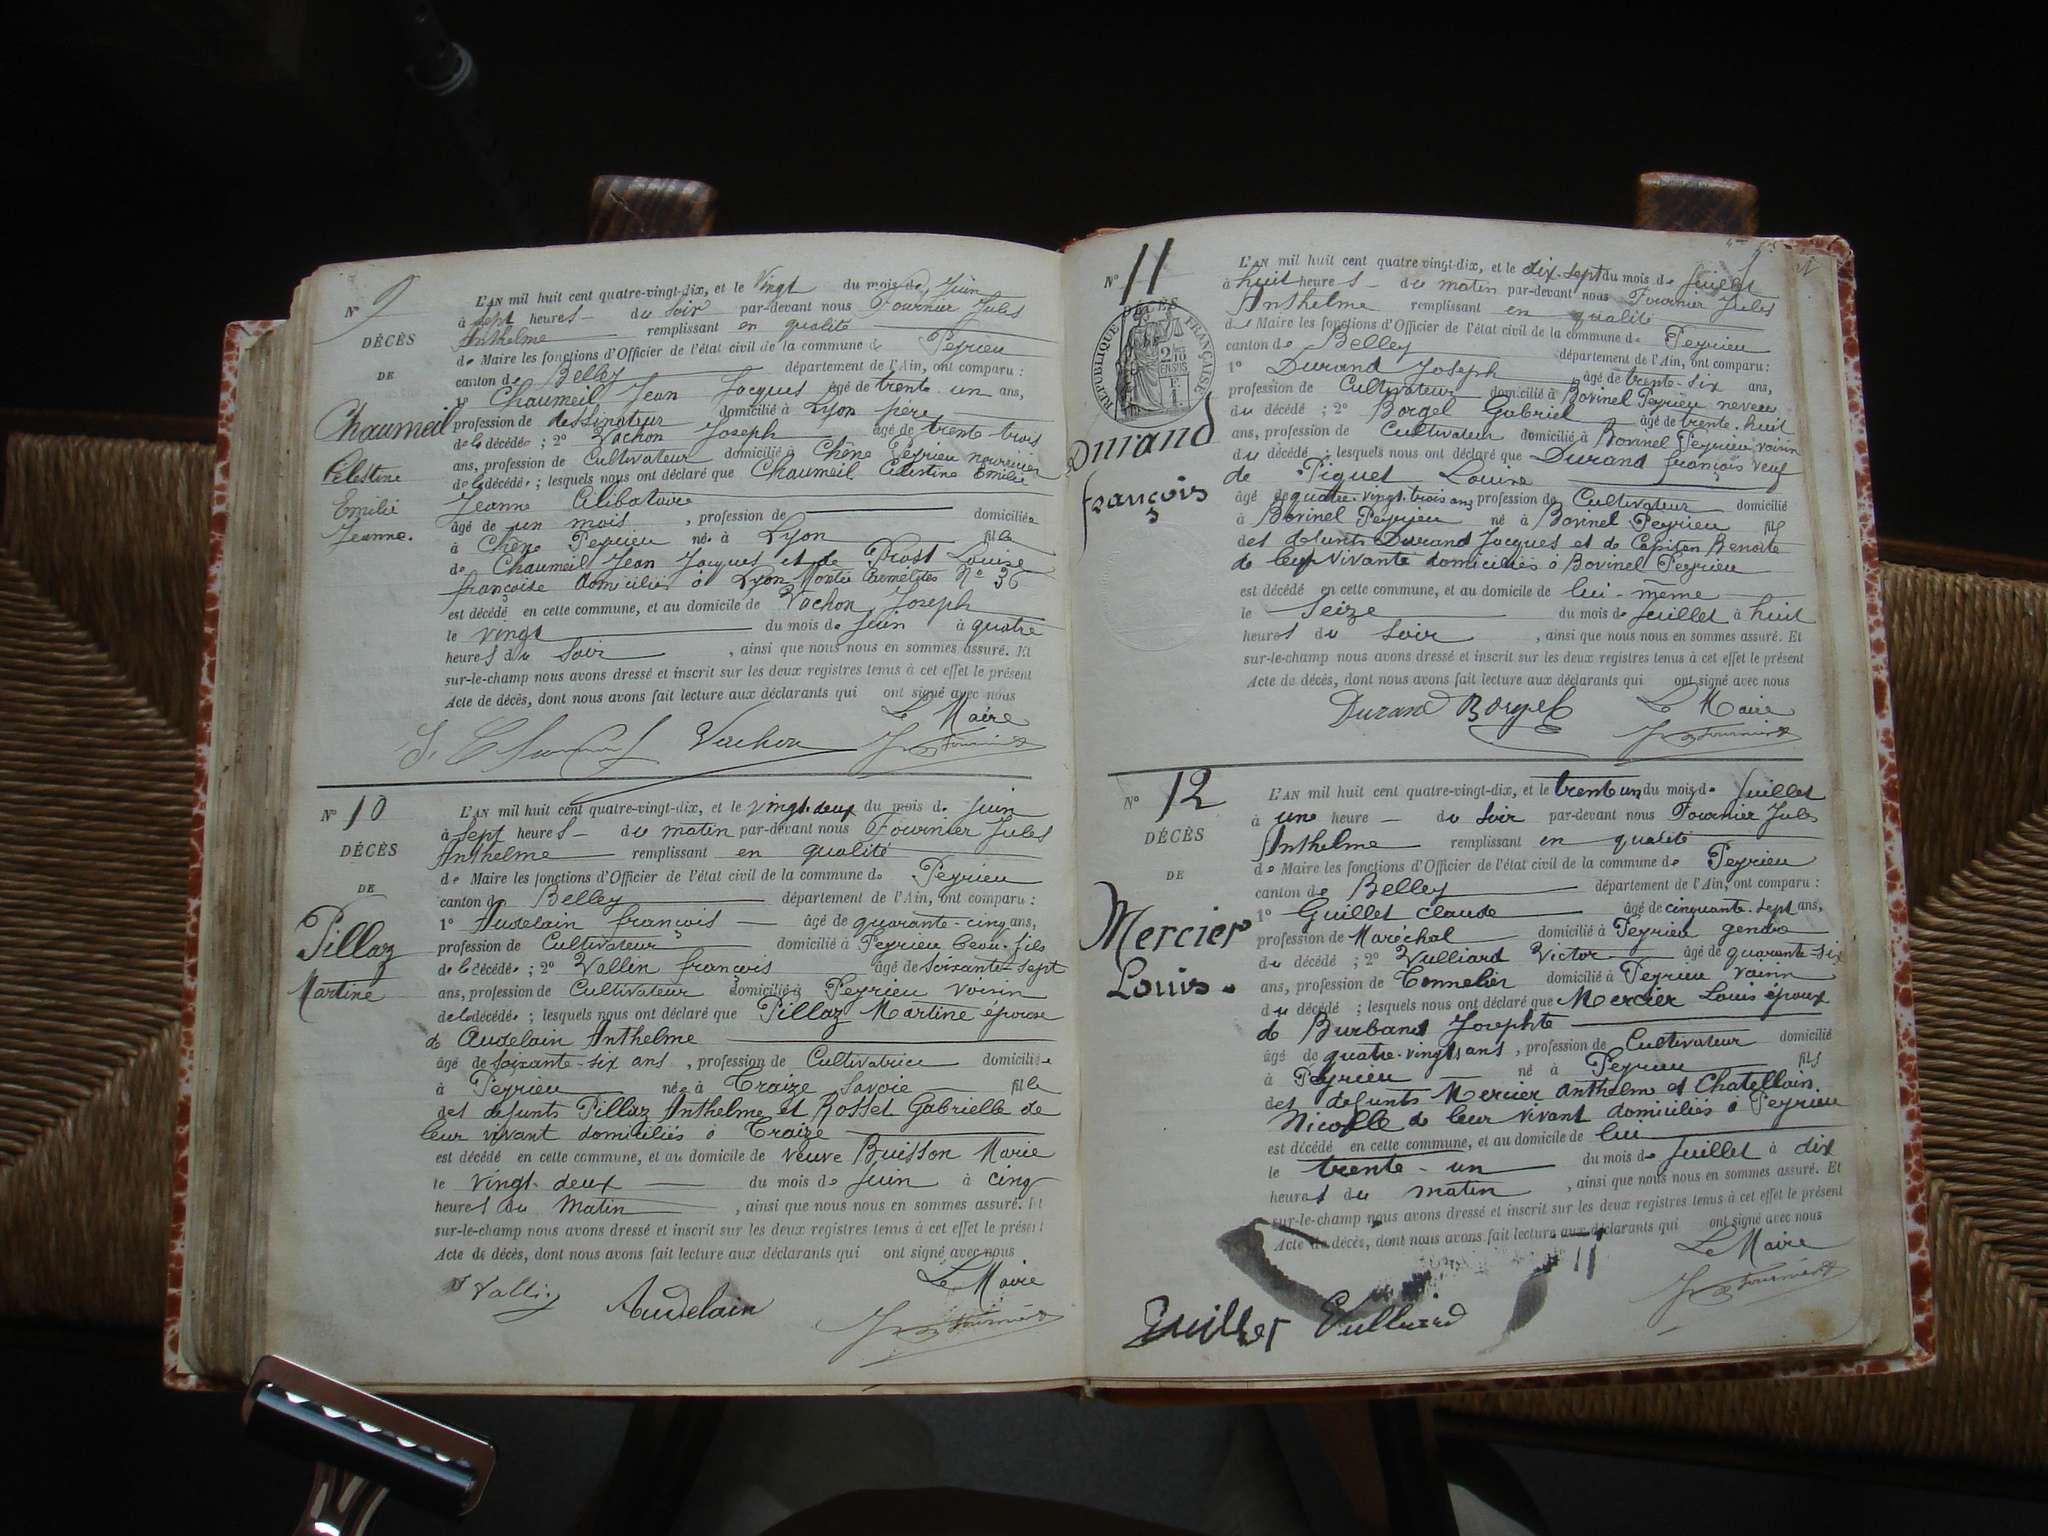 N° 9
DÉCÈS
DE
Chaumeil
Célestine
Emilie
Jeanne.
L'AN mil huit cent quatre-vingt-dix, et le vingt du mois de Juin
à sept heures du soir par-devant nous Fournier Jules
Anthelme remplissant en qualité
de Maire les fonctions d'Officier de l'état civil de la commune de Peyrieu
canton de Belley département de l'Ain, ont comparu :
1° Chaumeil Jean Jacques âgé de trente-un ans,
profession de dessinateur domicilié à Lyon père
de la décédée ; 2° Vachon Joseph âgé de trente-trois
ans, profession de Cultivateur domicilié à Chêne Peyrieu nourricier
de la décédée ; lesquels nous ont déclaré que Chaumeil Célestine Emilie
Jeanne Célibataire
âgé de un mois , profession de domiciliée
à Chêne Peyrieu née à Lyon fille
de Chaumeil Jean Jacques et de Prost Louise
françoise domiciliés à Lyon Montée Carmelites N° 36
est décédé en cette commune, et au domicile de Vachon Joseph
le vingt du mois de Juin à quatre
heures du soir , ainsi que nous nous en sommes assuré. Et
sur-le-champ nous avons dressé et inscrit sur les deux registres tenus à cet effet le présent
Acte de décès, dont nous avons fait lecture aux déclarants qui ont signé avec nous
Le Maire
Vachon
N° 10
DÉCÈS
DE
Pillaz
Martine
L'AN mil huit cent quatre-vingt-dix, et le vingt-deux du mois de Juin
à sept heures du matin par-devant nous Fournier Jules
Anthelme remplissant en qualité
de Maire les fonctions d'Officier de l'état civil de la commune de Peyrieu
canton de Belley département de l'Ain, ont comparu :
1° Audelain françois âgé de quarante-cinq ans,
profession de Cultivateur domicilié à Peyrieu beau-fils
de la décédée ; 2° Vallin françois âgé de soixante-sept
ans, profession de Cultivateur domicilié à Peyrieu voisin
de la décédée ; lesquels nous ont déclaré que Pillaz Martine épouse
de Audelain Anthelme
âgé de soixante-six ans , profession de Cultivatrice domiciliée
à Peyrieu née à Traize Savoie fille
des defunts Pillaz Anthelme et Rosset Gabrielle de
leur vivant domiciliés à Traize
est décédé en cette commune, et au domicile de veuve Buisson Marie
le vingt-deux du mois de Juin à cinq
heures du Matin , ainsi que nous nous en sommes assuré. Et
sur-le-champ nous avons dressé et inscrit sur les deux registres tenus à cet effet le présent
Acte de décès, dont nous avons fait lecture aux déclarants qui ont signé avec nous
Le Maire
Audelain
N° 11
DÉCÈS
RÉPUBLIQUE FRANÇAISE
Durand
françois
L'AN mil huit cent quatre-vingt-dix, et le dix-sept du mois de Juillet
à huit heures du matin par-devant nous Fournier Jules
Anthelme remplissant en qualité
de Maire les fonctions d'Officier de l'état civil de la commune de Peyrieu
canton de Belley département de l'Ain, ont comparu :
1° Durand Joseph âgé de trente-six ans,
profession de Cultivateur domicilié à Bovinel Peyrieu neveu
du décédé ; 2° Borgel Gabriel âgé de trente-huit
ans, profession de Cultivateur domicilié à Bovinel Peyrieu voisin
du décédé ; lesquels nous ont déclaré que Durand françois veuf
de Piguet Louise
âgé de quatre-vingt-trois ans profession de Cultivateur domicilié
à Bovinel Peyrieu né à Bovinel Peyrieu fils
des defunts Durand Jacques et de Capitan Benoite
de leur vivante domiciliés à Bovinel Peyrieu
est décédé en cette commune, et au domicile de lui-même
le seize du mois de Juillet à huit
heures du soir , ainsi que nous nous en sommes assuré. Et
sur-le-champ nous avons dressé et inscrit sur les deux registres tenus à cet effet le présent
Acte de décès, dont nous avons fait lecture aux déclarants qui ont signé avec nous
Durand Borgel Le Maire
N° 12
DÉCÈS
DE
Mercier
Louis.
L'AN mil huit cent quatre-vingt-dix, et le trente un du mois de Juillet
à une heure du soir par-devant nous Fournier Jules
Anthelme remplissant en qualité
de Maire les fonctions d'Officier de l'état civil de la commune de Peyrieu
canton de Belley département de l'Ain, ont comparu :
1° Guillet Claude âgé de cinquante-sept ans,
profession de Maréchal domicilié à Peyrieu gendre
du décédé ; 2° Vulliard Victor âgé de quarante-six
ans, profession de Tonnelier domicilié à Peyrieu voisin
du décédé ; lesquels nous ont déclaré que Mercier Louis époux
de Burband Josephte
âgé de quatre-vingts ans , profession de Cultivateur domicilié
à Peyrieu né à Peyrieu fils
des defunts Mercier Anthelme et Chatellain
Nicolle de leur vivant domiciliés à Peyrieu
est décédé en cette commune, et au domicile de lui
le trente-un du mois de Juillet à dix
heures du matin , ainsi que nous nous en sommes assuré. Et
sur-le-champ nous avons dressé et inscrit sur les deux registres tenus à cet effet le présent
Acte de décès, dont nous avons fait lecture aux déclarants qui ont signé avec nous
Le Maire
Guillet Vulliard